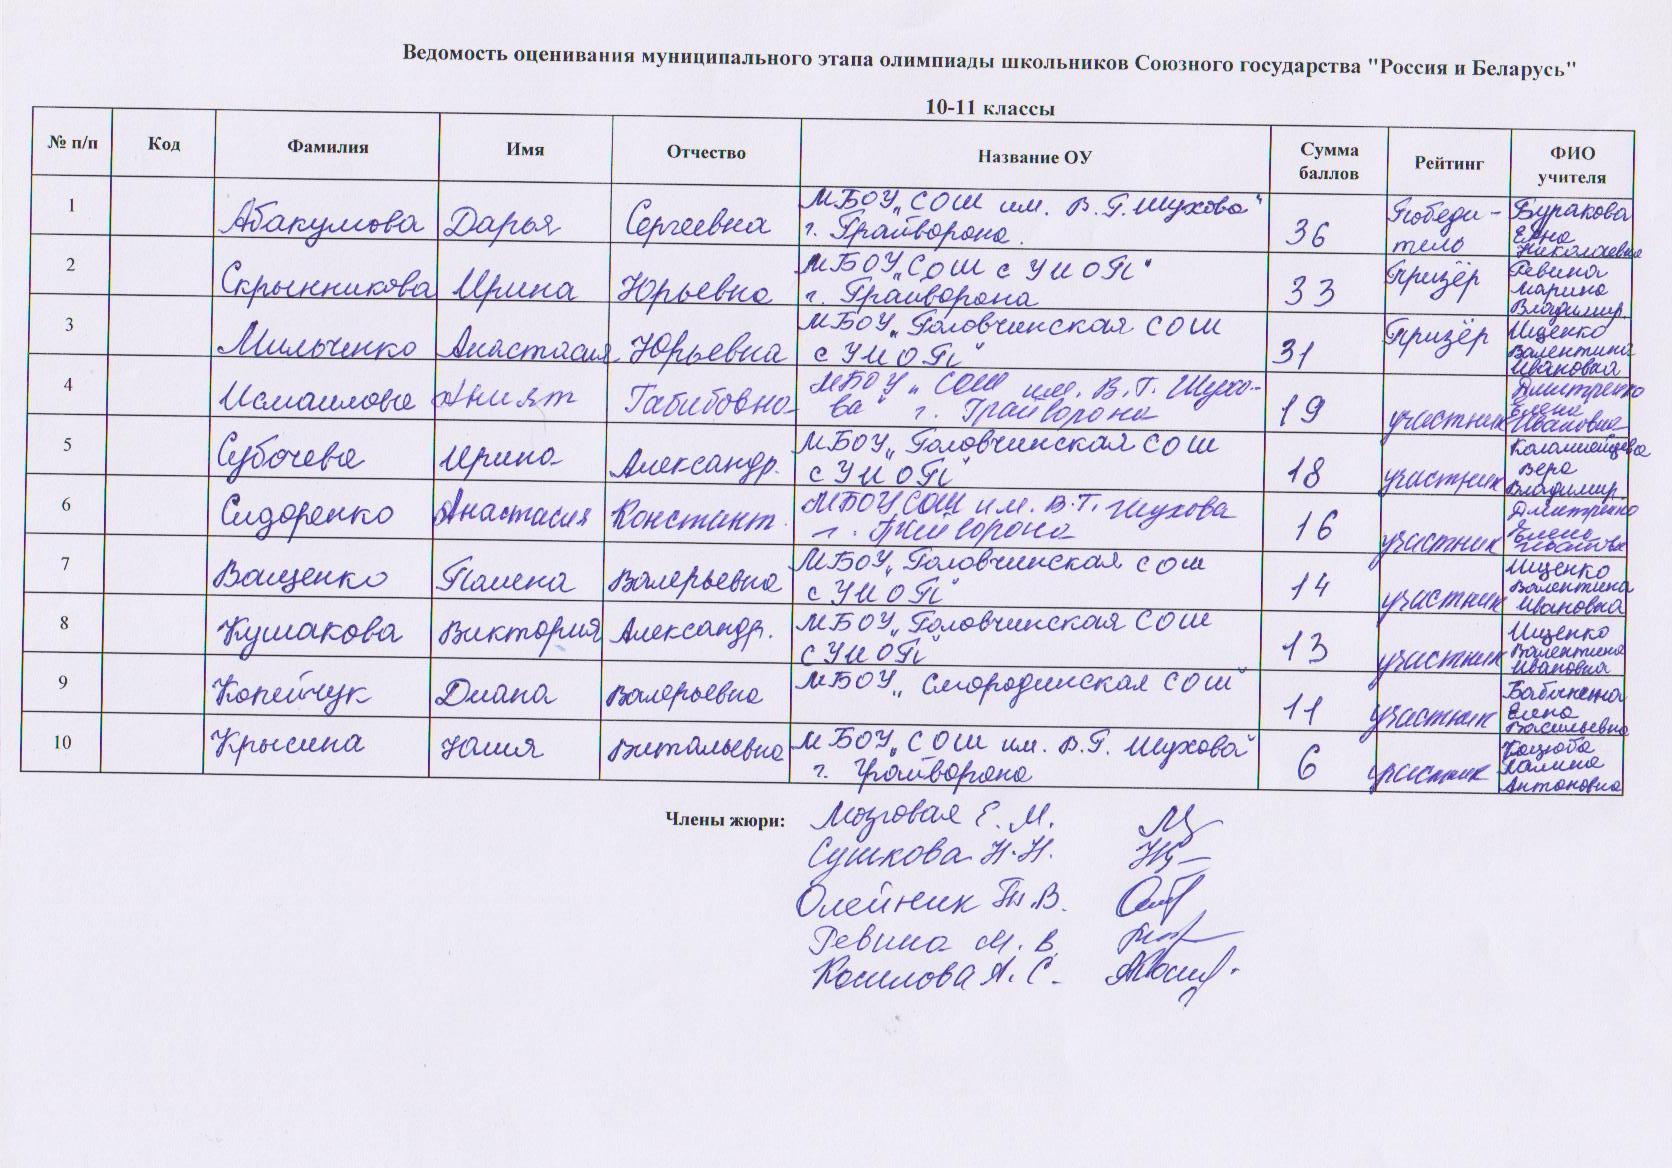 Ведомость оценивания муниципального этапа олимпиады школьников Союзного государства "Россия и Беларусь"
10-11 классы
№ п/п Код Фамилия Имя Отчество Название ОУ Сумма баллов Рейтинг ФИО учителя
1 Абакумова Дарья Сергеевна МБОУ „СОШ им. В.Г. Шухова" г. Грайворона. 36 Победитель Буракова Николаевна
2 Скрынникова Ирина Юрьевна МБОУ „СОШ с УИОП" г. Грайворона 33 Призёр Ревина Марина Владимир.
3 Мильченко Анастасия Юрьевна МБОУ „Головчинская СОШ с УИОП" 31 Призёр Ищенко Валентина Ивановна
4 Исмаилова Ният Габибовна МБОУ „СОШ им. В.Г. Шухова" г. Грайворона 19 участник Дмитренко Елена Ивановна
5 Субочева Ирина Александр. МБОУ „Головчинская СОШ с УИОП" 18 участник Коломыйцева Вера Владимир.
6 Сидоренко Анастасия Констант. МБОУ СОШ им. В.Г. Шухова г. Грайворона 16 участник Дмитренко Елена
7 Ващенко Полина Валерьевна МБОУ „Головчинская СОШ с УИОП" 14 участник Ищенко Валентина Ивановна
8 Кушакова Виктория Александр. МБОУ „Головчинская СОШ с УИОП" 13 участник Ищенко Валентина Ивановна
9 Копейчук Диана Валерьевна МБОУ „Смородинская СОШ" 11 участник Елена Васильевна
10 Крысина Юлия Витальевна МБОУ „СОШ им. В.Г. Шухова" г. Грайворона 6 участник Коцюба Галина Антоновна
Члены жюри: Мозговая Е. М.
Сушкова Н.Н.
Олейник Т.В.
Ревина М. В.
Косилова А. С.